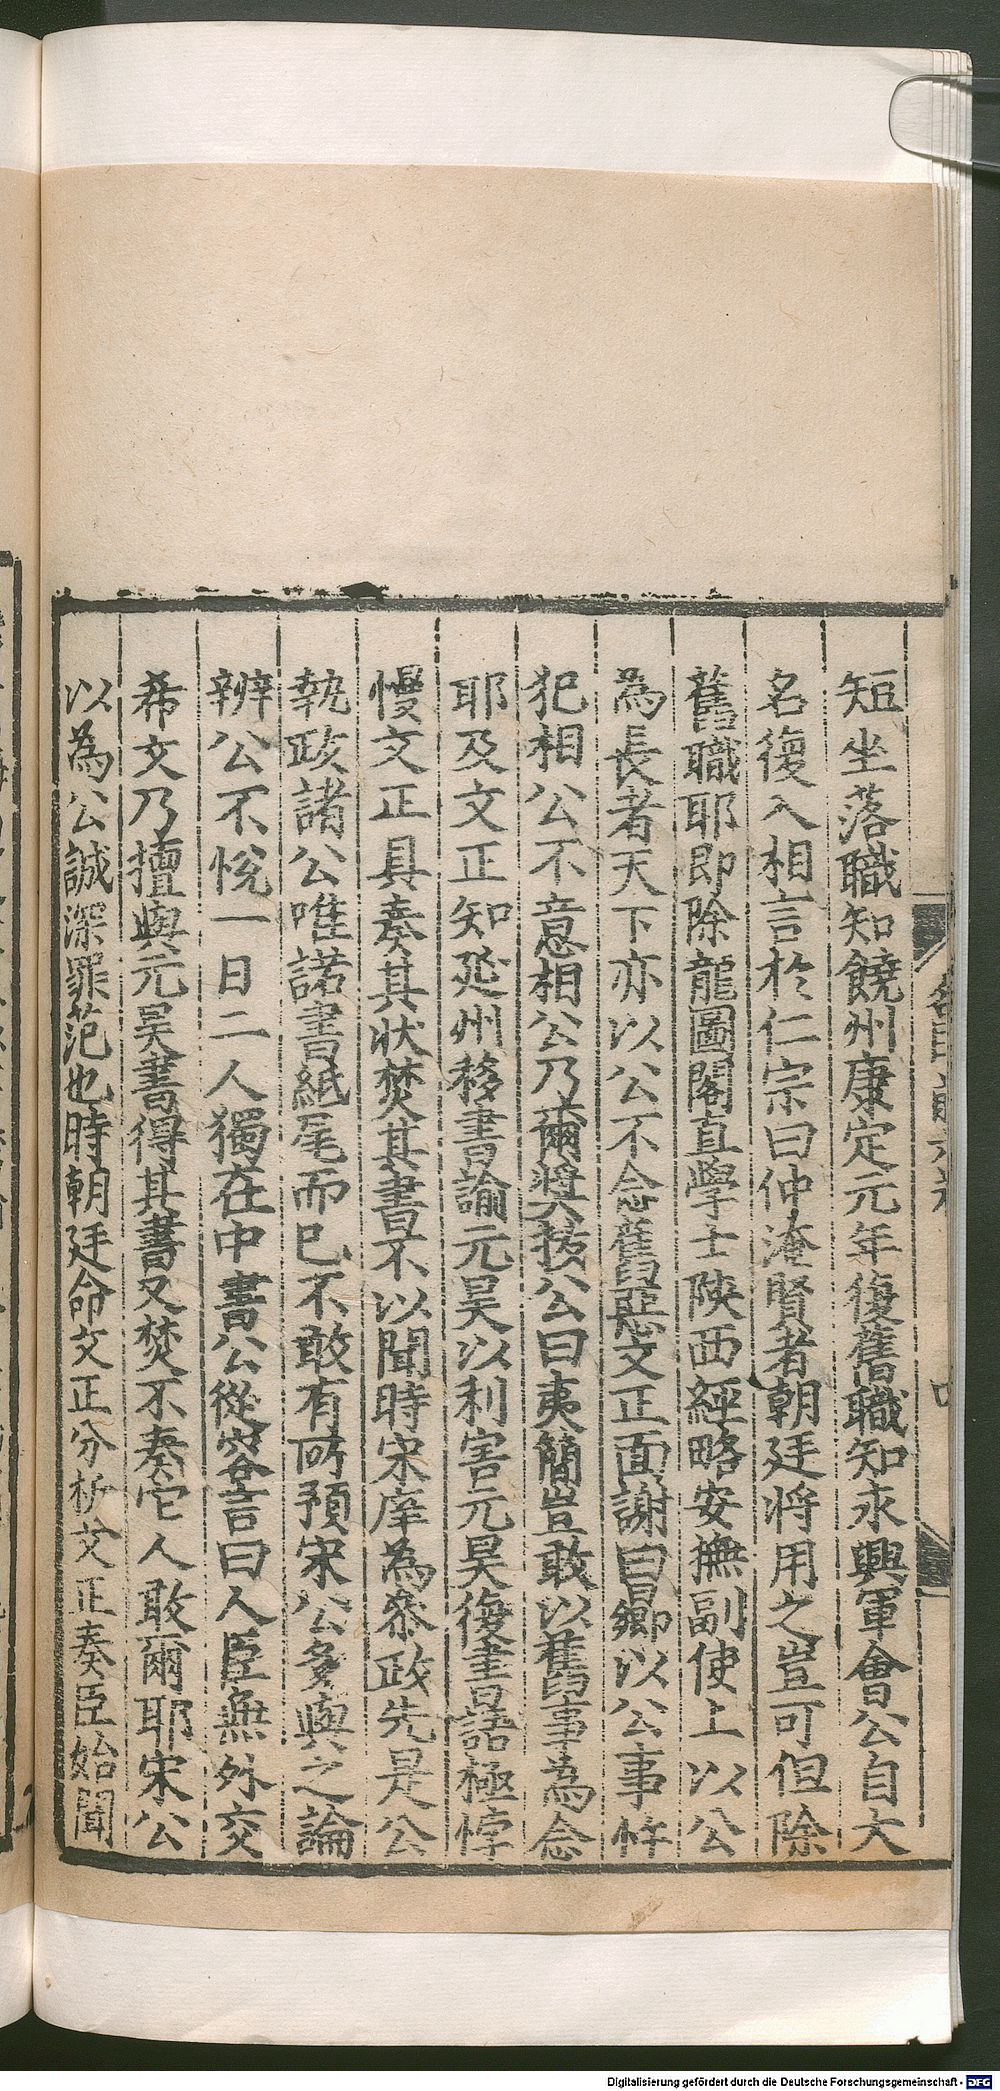 短坐落職知饒州康定元年復舊職知永興軍會公自大
名復入相言於仁宗曰仲淹賢者朝廷將用之豈可但除
舊職耶即除龍圖閣直學士陝西經略安撫副使上以公
為長者天下亦以公不念舊惡文正面謝曰鄉以公事忤
犯相公不意相公乃爾奬拔公曰夷簡豈敢以舊事為念
耶及文正知延州移書諭元昊以利害元昊復書語極悖
慢文正具奏其狀焚其書不以聞時宋庠為叅政先是公
執政諸公唯諾書紙尾而已不敢有所預宋公多與之論
辨公不悅一日二人獨在中書公從容言曰人臣無外交
希文乃擅與元昊書得其書又焚不奏它人敢爾耶宋公
以為公誠深罪范也時朝廷命文正分析文正奏臣始聞
Digitalisierung gefördert durch die Deutsche Forschungsgemeinschaft - DFG